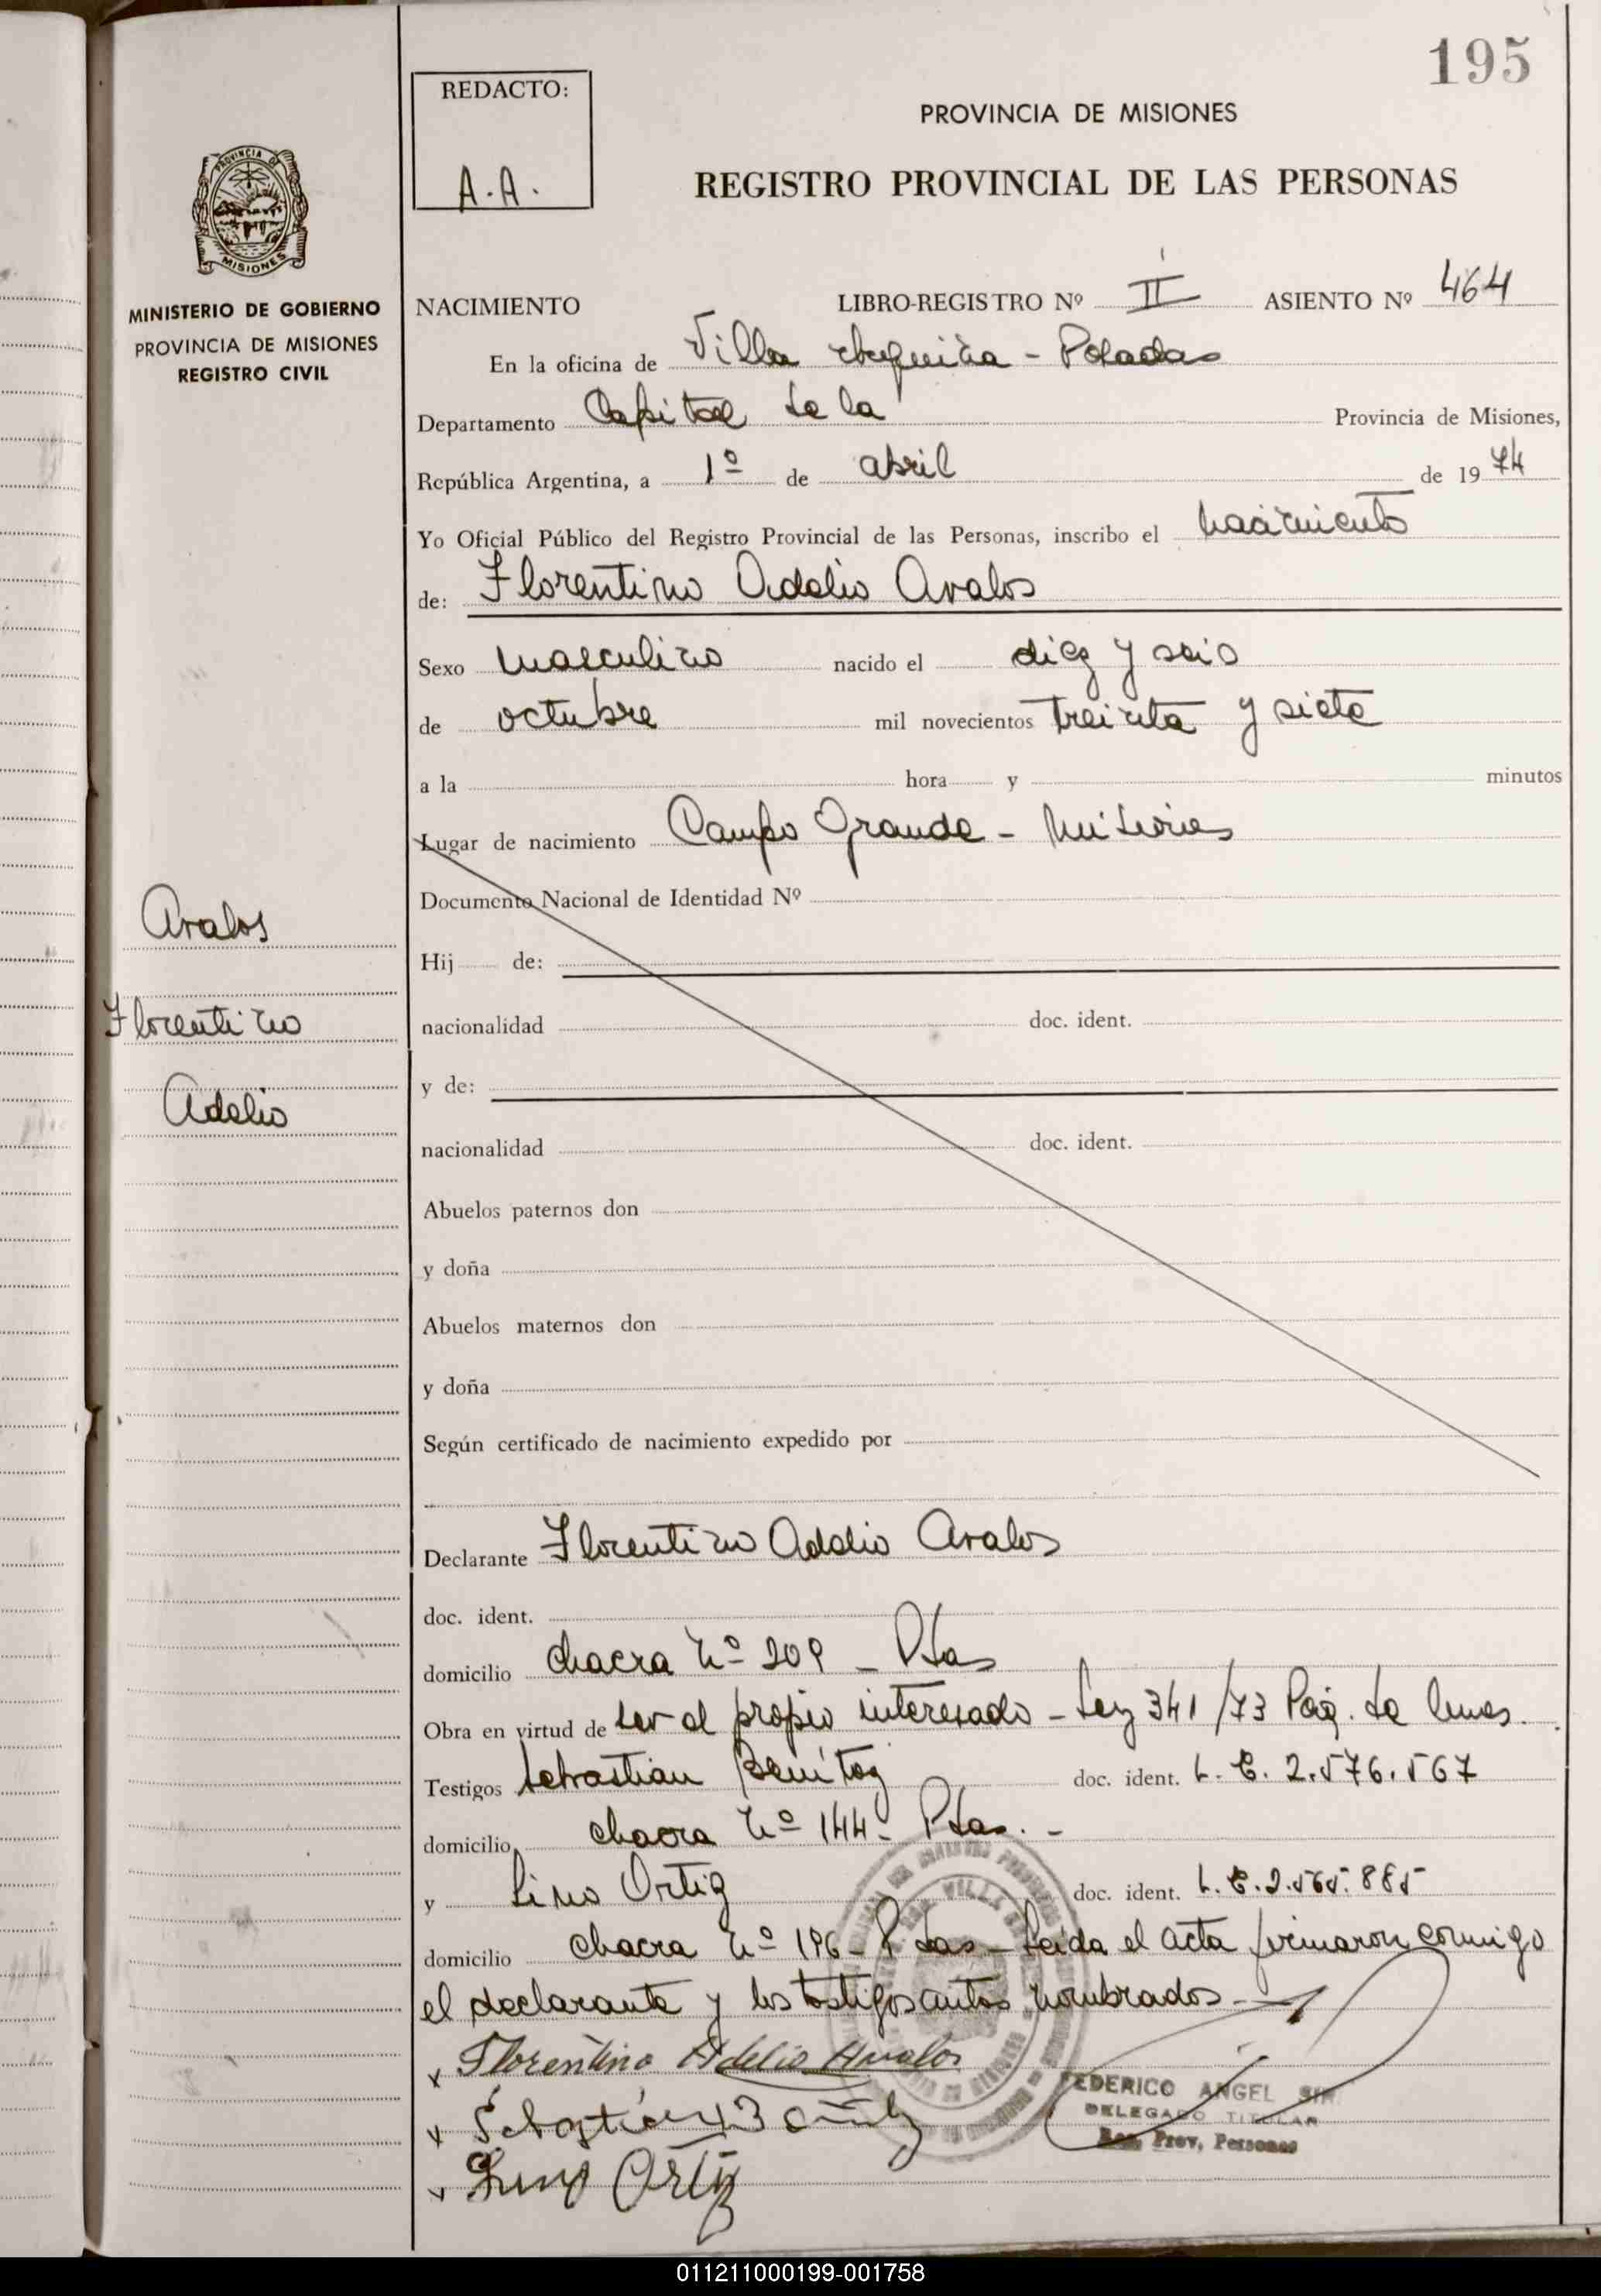 195
REDACTO:
A.A.
PROVINCIA DE MISIONES
REGISTRO PROVINCIAL DE LAS PERSONAS
PROVINCIA DE
MISIONES
MINISTERIO DE GOBIERNO
PROVINCIA DE MISIONES
REGISTRO CIVIL
NACIMIENTO LIBRO-REGISTRO Nº II ASIENTO Nº 464
En la oficina de Villa Urquiza - Posadas
Departamento Capital de la Provincia de Misiones,
República Argentina, a 1º de abril de 1974
Yo Oficial Público del Registro Provincial de las Personas, inscribo el nacimiento
de: Florentino Adelio Avalos
Sexo masculino nacido el diez y seis
de octubre mil novecientos treinta y siete
a la hora y minutos
Lugar de nacimiento Campo Grande - Misiones
Documento Nacional de Identidad Nº
Avalos
Hij de:
Florentino
nacionalidad doc. ident.
Adelio
y de:
nacionalidad doc. ident.
Abuelos paternos don
y doña
Abuelos maternos don
y doña
Según certificado de nacimiento expedido por
Declarante Florentino Adelio Avalos
doc. ident.
domicilio chacra Nº 209 - Pdas
Obra en virtud de ser el propio interesado - Ley 341/73
Testigos Sebastian Benitez doc. ident. L. E. 2.576.567
domicilio chacra Nº 144 - Pdas. -
y Lino Ortiz doc. ident. L. E. 2.565.885
domicilio chacra Nº 196 - Pdas - Leida el acta firmaron conmigo
el declarante y los testigos antes nombrados -
x Florentino Adelio Avalos
FEDERICO ANGEL
DELEGADO TITULAR
Reg. Prov. Personas
x
x Lino Ortiz
011211000199-001758